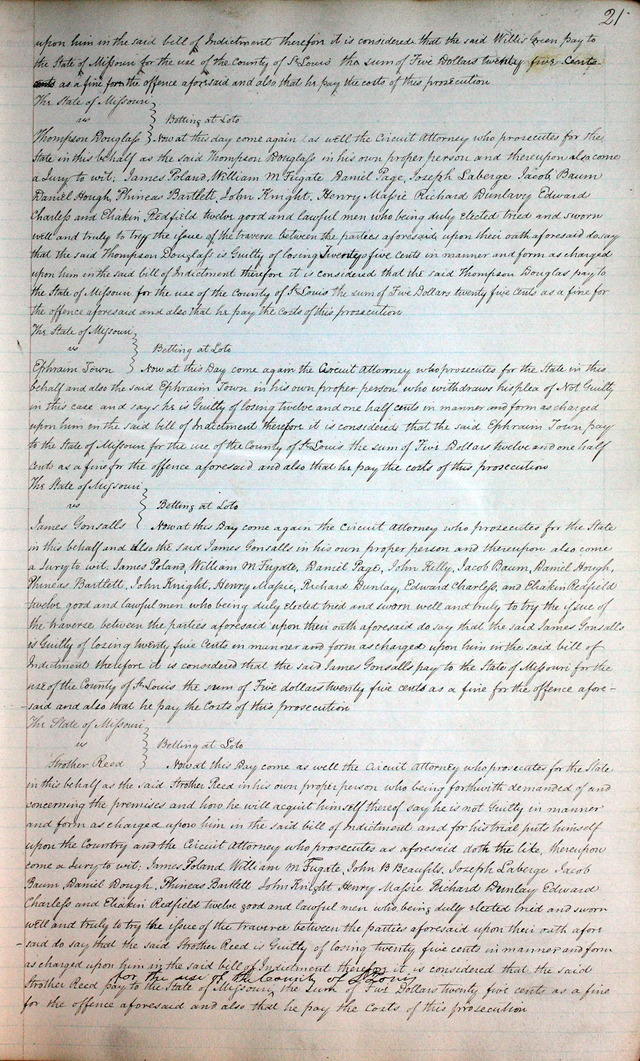 21
upon him in the said bill of Indictment therefore it is considered that the said Willis Green pay to
the State of Missouri for the use of the County of St Louis the sum of Five Dollars twenty five Cents
cents as a fine for the offence aforesaid and also that he pay the costs of this prosecution
The State of Missouri
vs } Betting at Loto
Thompson Douglass } Now at this day come again as well the Circuit Attorney who prosecutes for the
State in this behalf as the said Thompson Douglass in his own proper person and thereupon also come
a Jury to wit; James Poland, William M Fugate Daniel Page, Joseph Laberge Jacob Baum
Daniel Hough, Phineas Bartlett, John Knight, Henry Massie Richard Dunlavy Edward
Charless and Eliakin Redfield twelve good and lawful men who being duly elected tried and sworn
well and truly to try the issue of the traverse between the parties aforesaid upon their oath aforesaid do say
that the said Thompson Douglass is Guilty of losing twenty five cents in manner and form as charged
upon him in the said bill of Indictment therefore it is considered that the said Thompson Douglas pay to
the State of Missouri for the use of the County of St Louis the sum of Five Dollars twenty five cents as a fine for
the offence aforesaid and also that he pay the costs of this prosecution
The State of Missouri
vs } Betting at Loto
Ephraim Town } Now at this Day come again the Circuit Attorney who prosecutes for the State in this
behalf and also the said Ephraim Town in his own proper person who withdraws his plea of Not Guilty
in this case and says he is Guilty of losing twelve and one half cents in manner and form as charged
upon him in the said bill of Indictment therefore it is considered that the said Ephraim Town, pay
to the State of Missouri for the use of the County of St Louis the sum of Five Dollars twelve and one half
cents as a fine for the offence aforesaid and also that he pay the costs of this prosecution
The State of Missouri
vs } Betting at Loto
James Gonsalls } Now at this Day come again the Circuit Attorney who prosecutes for the State
in this behalf and also the said James Gonsalls in his own proper person and thereupon also come
a Jury to wit: James Poland, William M Fugate, Daniel Page, John Kelly, Jacob Baum, Daniel Hough,
Phineas Bartlett, John Knight, Henry Massie, Richard Dunlay, Edward Charless, and Eliakin Redfield
twelve good and lawful men who being duly elected tried and sworn well and truly to try the issue of
the traverse between the parties aforesaid upon their oath aforesaid do say that the said James Gonsalls
is Guilty of losing twenty five Cents in manner and form as charged upon him in the said bill of
Indictment therefore it is considered that the said James Gonsalls pay to the State of Missouri for the
use of the County of St Louis the sum of Five dollars twenty five cents as a fine for the offence afore-
said and also that he pay the Costs of this prosecution
The State of Missouri
vs } Betting at Loto
Strother Reed } Now at this Day come as well the Circuit Attorney who prosecutes for the State
in this behalf as the said Strother Reed in his own proper person who being forthwith demanded of and
concerning the premises and how he will acquit himself thereof say he is not Guilty in manner
and form as charged upon him in the said bill of Indictment and for his trial puts himself
upon the Country and the Circuit Attorney who prosecutes as aforesaid doth the like, thereupon
come a Jury to wit; James Poland, William M Fugate, John B Beaufils, Joseph Laberge Jacob
Baum, Daniel Hough, Phineas Bartlett John Knight Henry Massie Richard Dunlay Edward
Charless and Eliakin Redfield twelve good and lawful men who being duly elected tried and sworn
well and truly to try the issue of the traverse between the parties aforesaid upon their oath afore
said do say that the said Strother Reed is Guilty of losing twenty five cents in manner and form
as charged upon him in the said bill of Indictment therefore it is considered that the said
for the use of the County of St Louis
Strother Reed pay to the State of Missouri, the sum of Five Dollars twenty five cents as a fine
for the offence aforesaid and also that he pay the Costs of this prosecution